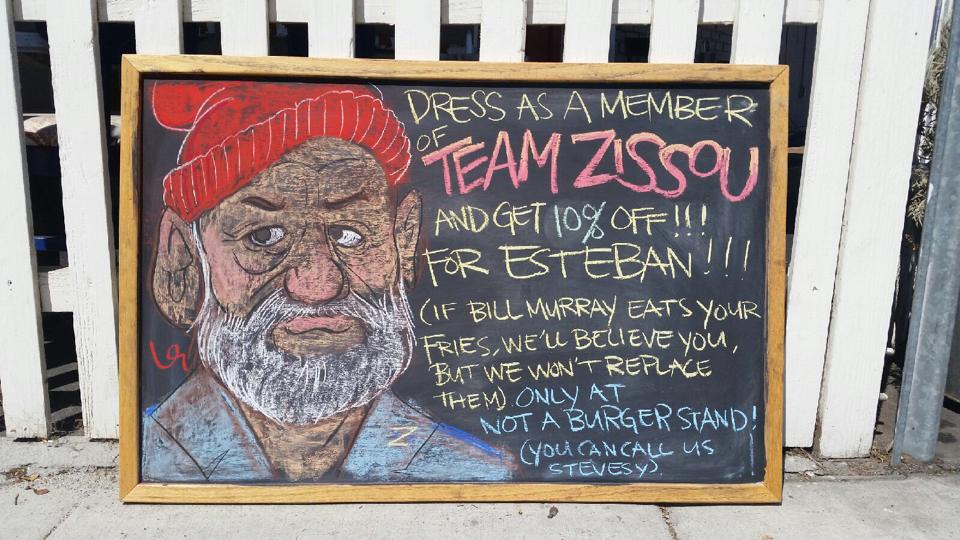 DRESS AS A MEMBER
OF
TEAM ZISSOU
AND GET 10% OFF!!!
FOR ESTEBAN!!!
(IF BILL MURRAY EATS YOUR
FRIES, WE'LL BELIEVE YOU,
BUT WE WON'T REPLACE
THEM). ONLY AT
NOT A BURGER STAND!
(YOU CAN CALL US
STEVESY).
Z